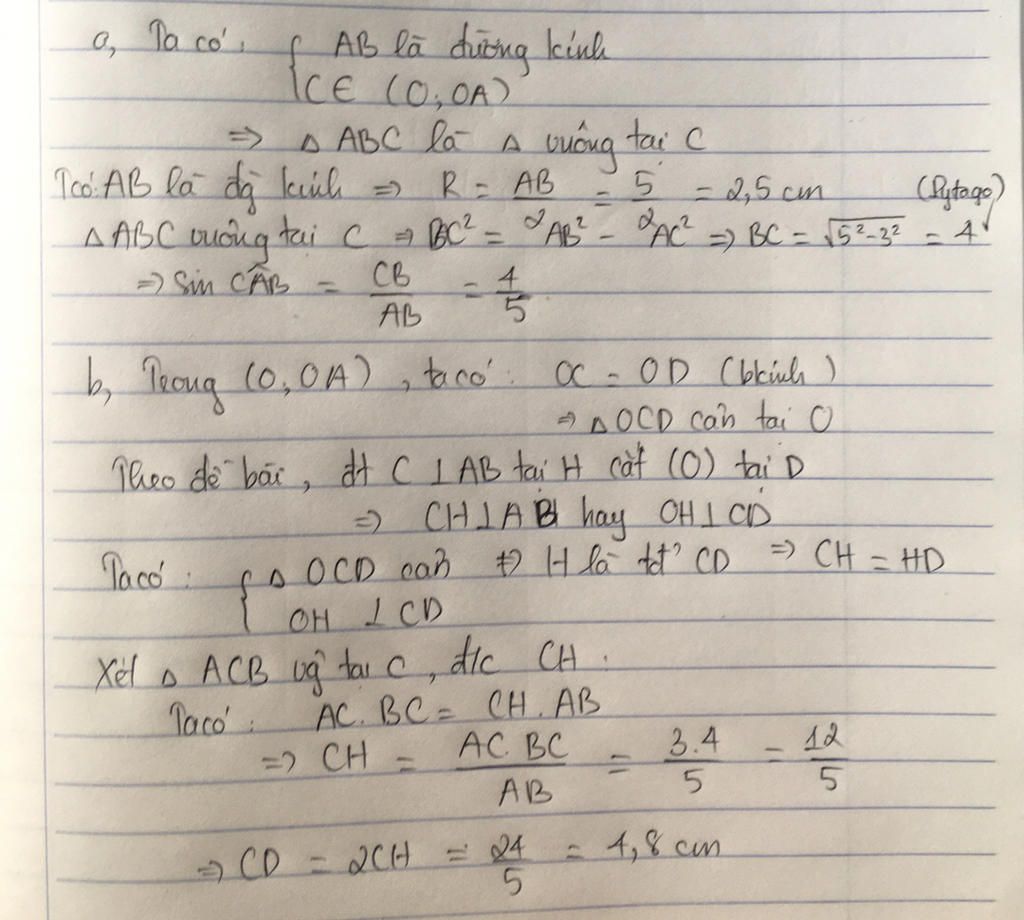 a, Ta có: { AB là đường kính
C ∈ (O; OA)
=> △ ABC là △ vuông tại C
Tcó: AB là đg kính => R = AB/2 = 5/2 = 2,5 cm (Pytago)
△ ABC vuông tại C => BC² = AB² - AC² => BC = √5²-3² = 4
=> Sin CÂB = CB/AB = 4/5
b, Trong (O, OA), ta có: OC = OD (bkính)
=> △OCD cân tại O
Theo đề bài, đt C ⊥ AB tại H cắt (O) tại D
=> CH ⊥ AB hay OH ⊥ CD
Ta có: { △ OCD cân => H là tđ' CD => CH = HD
OH ⊥ CD
Xét △ ACB vg tại C, đ/c CH:
Ta có: AC. BC = CH. AB
=> CH = AC. BC/AB = 3.4/5 = 12/5
=> CD = 2CH = 24/5 = 4,8 cm